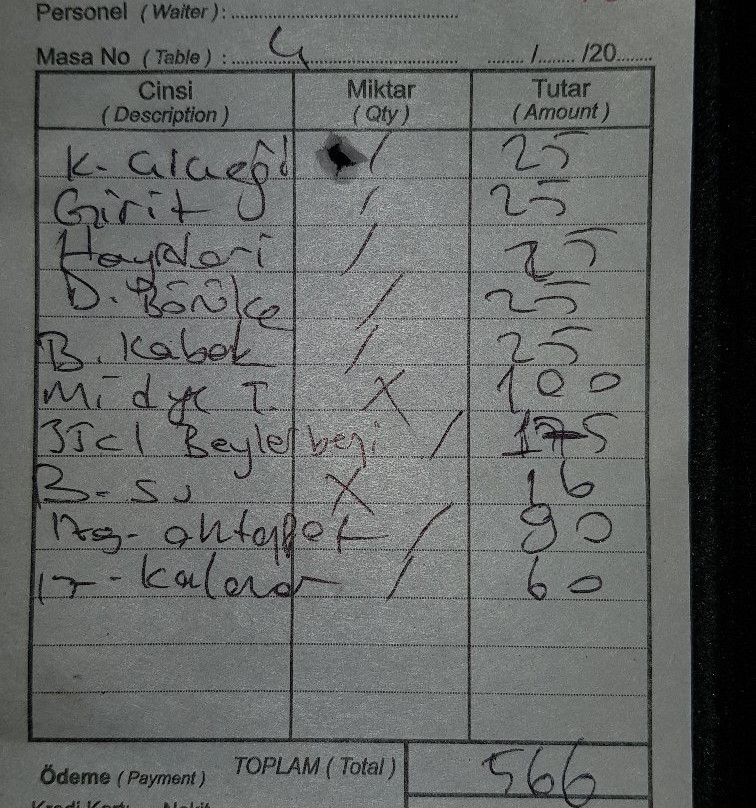 Personel ( Waiter ) :
Masa No ( Table ) : 4 ....../....../20......
Cinsi ( Description ) Miktar ( Qty ) Tutar ( Amount )
K. / 25
Girit / 25
Haydari / 25
D. Börülce / 25
B. Kabak / 25
Midye T. X 100
35cl Beylerbeyi / 175
B. Su X 16
Izg. Ahtapot / 90
Kalamar / 60
Ödeme ( Payment ) TOPLAM ( Total ) 566